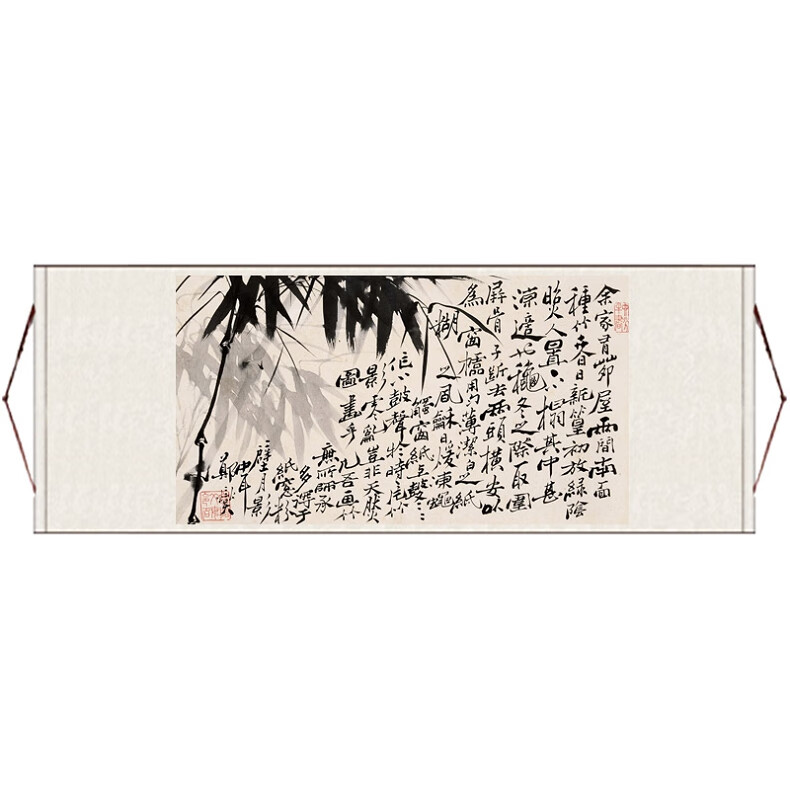 余家有茆屋兩間南面
種竹夏日新篁初放綠陰
照人置小榻其中甚
涼適也龝冬之際取圍
屏骨子斷去兩頭橫安以
為窗櫺用勻薄潔白之紙
糊之風龢日煖凍蠅
觸窗紙上鼕鼕
作小鼓聲於時竹
影零亂豈非天然
圖畫乎凡吾画竹
無所師承
多得于
紙窗粉
壁月影
中耳
鄭燮